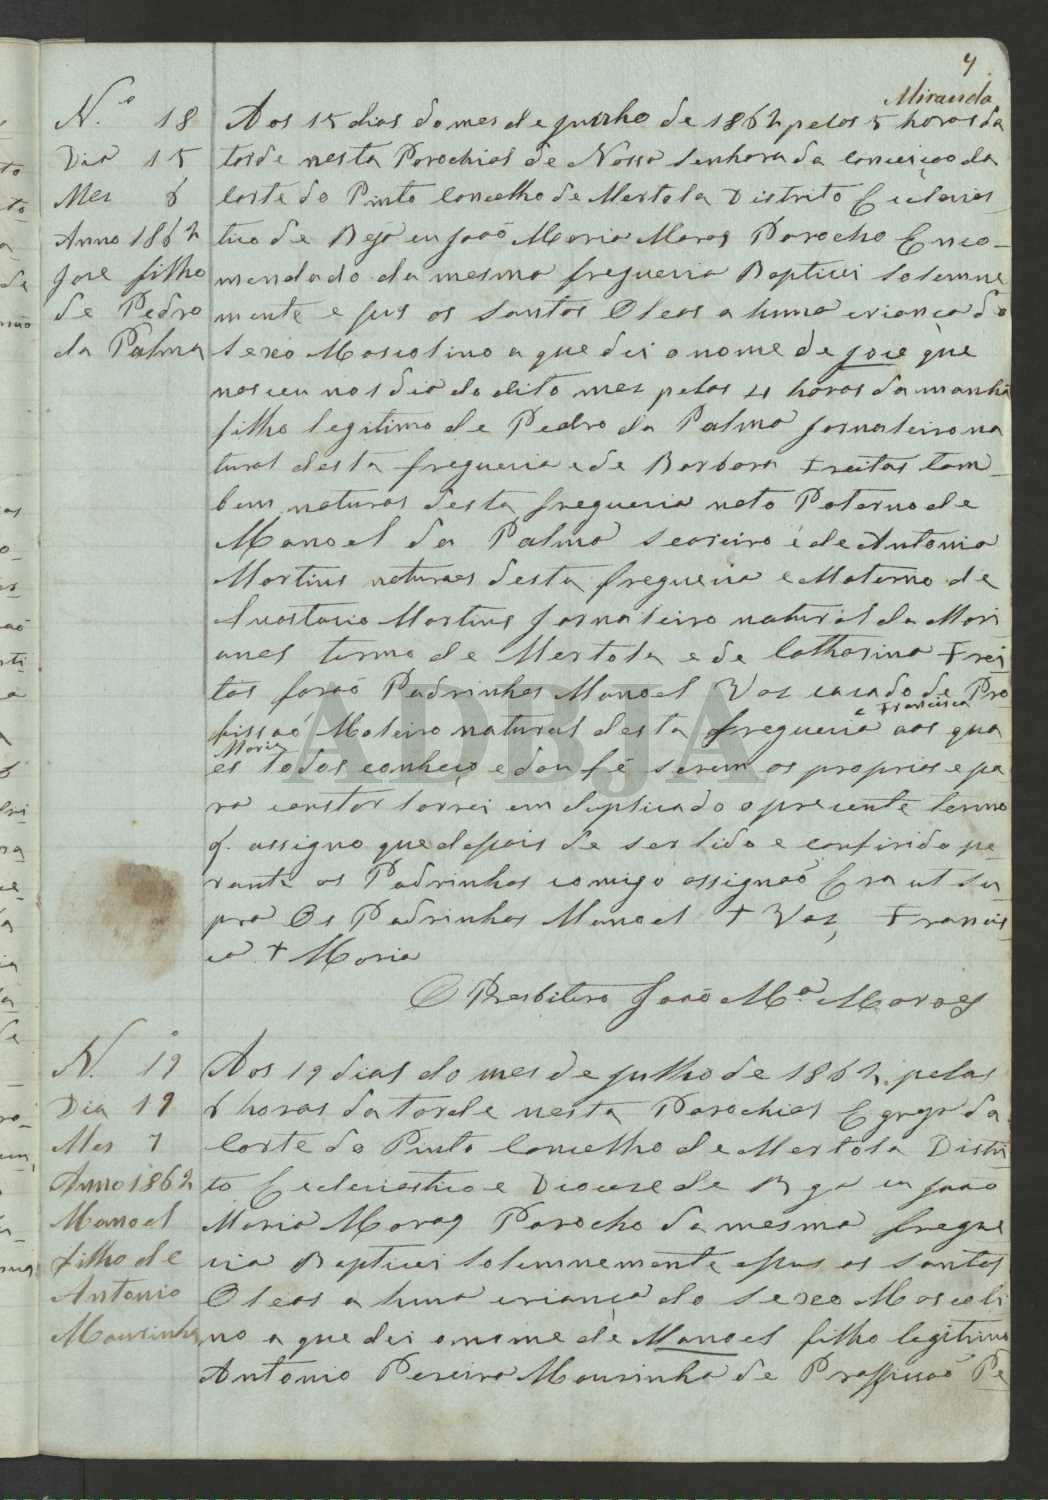 4
Miranda
N.º 18
Dia 15
Mes 6
Anno 1862
Jose filho
de Pedro
da Palma
Aos 15 dias do mes de junho de 1862 pelas 5 horas da
tarde nesta Parochial de Nossa Senhora da Conceiçao da
Corte do Pinto Concelho de Mertola Distrito Eclesias-
tico de Beja eu Joaõ Maria Moraes Parocho Enco-
mendado da mesma freguezia Baptizei Solemne
mente e pus os Santos Oleos a huma criança do
Sexo Mascolino a que dei o nome de Jose que
nasceu no dia do dito mez pelas 4 horas da manhã
filho legitimo de Pedro da Palma Jornaleiro na
tural desta freguezia e de Barbara Freitas tam-
bem natural desta freguezia neto Paterno de
Manoel da Palma Seareiro e de Antonia
Martins naturaes desta freguezia e Materno de
Anastacio Martins Jornaleiro natural da Mori
anes termo de Mertola e de Catharina Frei
tas foraõ Padrinhos Manoel Vaz casado de Pro
fissaõ Moleiro natural desta freguezia e Francisca
Maria aos qua
es todos conheço e dou fé serem os proprios e pa
ra constar lavrei em duplicado o prezente termo
q. assigno que depois de ser lido e conferido pe-
rante os Padrinhos comigo assignaõ Era ut su
pra Os Padrinhos Manoel + Vaz, Francis
ca + Maria
O Presbitero Joaõ M.ª Moraes
N.º 19
Dia 19
Mes 7
Anno 1862
Manoel
filho de
Antonio
Mousinho
Aos 19 dias do mes de julho de 1862 pelas
6 horas da tarde nesta Parochial Egreja da
Corte do Pinto Concelho de Mertola Distri
to Eclesiastico e Diocese de Beja eu Joaõ
Maria Moraes Parocho da mesma fregue
zia Baptizei Solemnemente e pus os Santos
Oleos a huma criança do Sexo Mascoli
no a que dei o nome de Manoel filho legitimo
Antonio Pereira Mousinho de Proffissaõ Pe
ADBJA